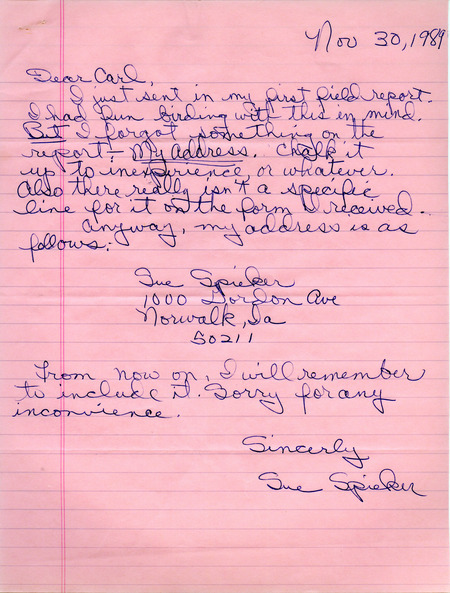 Nov 30, 1989
Dear Carl,
I just sent in my first field report.
I had fun birding with this in mind.
But I forgot something on the
report - My Address. Chalk it
up to inexperience, or whatever.
Also there really isn't a specific
line for it on the form I received.
Anyway, my address is as
follows:
Sue Spieker
1000 Gordon Ave
Norwalk, Ia
50211
From now on, I will remember
to include it. Sorry for any
inconvience.
Sincerly
Sue Spieker